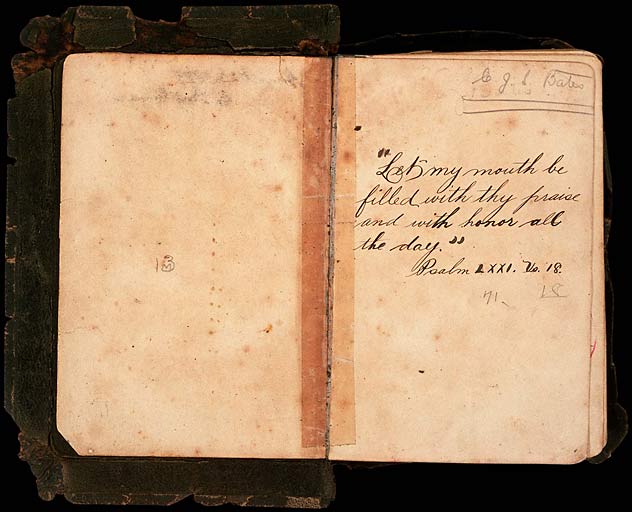 13
Bates
"Let my mouth be
filled with thy praise
and with honor all
the day."
Psalm LXXI. Vs. 18.
71- 18